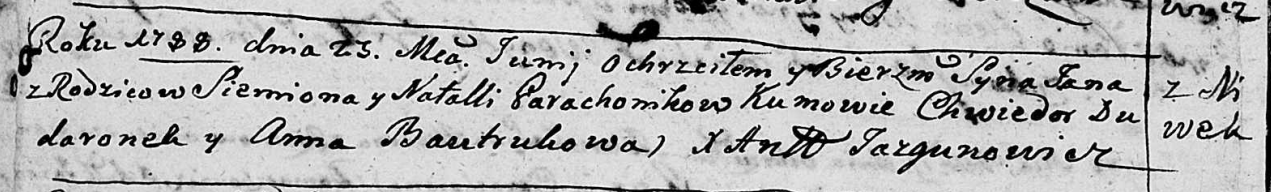 Roku 1788. dnia 23. Mca. Junij ochrzciłem y Bierzmo Syna Jana
z Rodzicow Siemiona y Natalli Parachonikow Kumowie Chwiedor Du
daronek y Anna Bautrukowa) X Antt Jazgunowicz
z Ni
wek